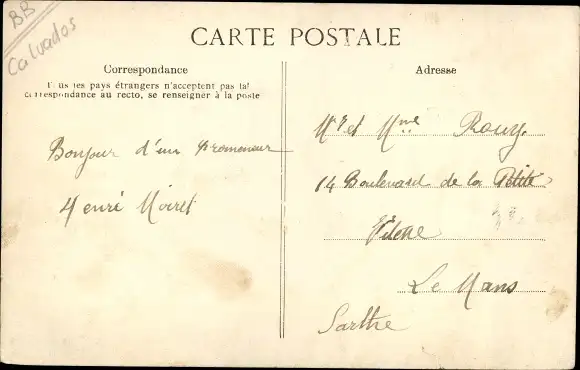 BB
Calvados
CARTE POSTALE
Correspondance
Tous les pays étrangers n'acceptent pas la
correspondance au recto, se renseigner à la poste
Bonjour d'un promeneur
Henri Moiret
Adresse
Mr et Mme Rouy.
14 Boulevard de la Petite
Vitesse
Le Mans
Sarthe